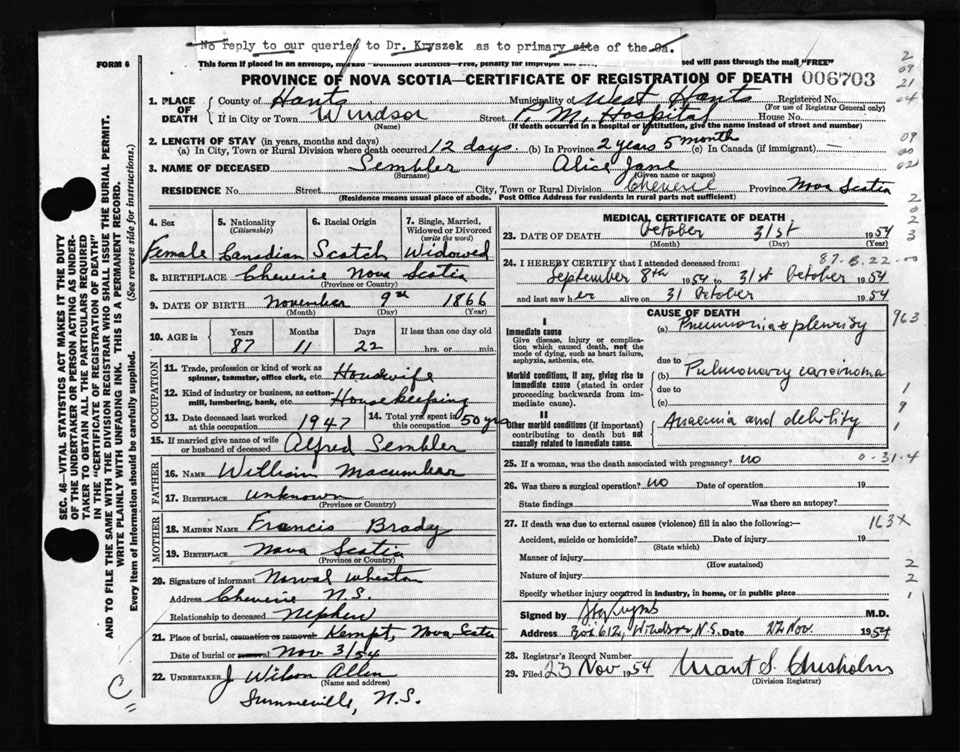 No reply to our queries to Dr. Kryszek as to primary site of the Ca.
FORM 6
This form if placed in an envelope, marked "Dominion Statistics—Free, penalty for improper use sed will pass through the mail "FREE"
PROVINCE OF NOVA SCOTIA—CERTIFICATE OF REGISTRATION OF DEATH 006703
1. PLACE OF DEATH
County of Hants Municipality of West Hants Registered No.
(For use of Registrar General only)
If in City or Town Windsor Street P. M. Hospital House No.
(Name) (If death occurred in a hospital or institution, give the name instead of street and number)
2. LENGTH OF STAY (in years, months and days)
(a) In City, Town or Rural Division where death occurred 12 days. (b) In Province 2 years 5 month (c) In Canada (if immigrant) —
3. NAME OF DECEASED Sembler Alice Jane
(Surname) (Given name or names)
RESIDENCE No. Street City, Town or Rural Division Cheverie Province Nova Scotia
(Residence means usual place of abode. Post Office Address for residents in rural parts not sufficient)
4. Sex Female
5. Nationality (Citizenship) Canadian
6. Racial Origin Scotch
7. Single, Married, Widowed or Divorced (write the word) Widowed
8. BIRTHPLACE Cheverie Nova Scotia
(Province or Country)
9. DATE OF BIRTH November 9th 1866
(Month) (Day) (Year)
10. AGE in Years 87 Months 11 Days 22 If less than one day old hrs. or min.
OCCUPATION
11. Trade, profession or kind of work as spinner, teamster, office clerk, etc. Housewife
12. Kind of industry or business, as cotton-mill, lumbering, bank, etc. Housekeeping
13. Date deceased last worked at this occupation 1947
14. Total yrs. spent in this occupation 50 yrs
15. If married give name of wife or husband of deceased Alfred Sembler
FATHER
16. NAME William Macumber
17. BIRTHPLACE unknown
(Province or Country)
MOTHER
18. MAIDEN NAME Francis Brady
19. BIRTHPLACE Nova Scotia
(Province or Country)
20. Signature of informant Norval Wheaton
Address Cheverie N.S.
Relationship to deceased Nephew
21. Place of burial, cremation or removal Kempt, Nova Scotia
Date of burial or removal Nov 3/54
22. UNDERTAKER J Wilson Allen
(Name and address)
Summerville, N.S.
MEDICAL CERTIFICATE OF DEATH
23. DATE OF DEATH October 31st 1954
(Month) (Day) (Year)
87-5.22-00
24. I HEREBY CERTIFY that I attended deceased from:
September 8th 1954 to 31st October 1954
and last saw her alive on 31 October 1954
CAUSE OF DEATH
I
Immediate cause
Give disease, injury or complication which caused death, not the mode of dying, such as heart failure, asphyxia, asthenia, etc.
(a) Pneumonia & pleurisy 963
due to
Morbid conditions, if any, giving rise to immediate cause (stated in order proceeding backwards from immediate cause).
(b) Pulmonary carcinoma
due to
(c)
II
Other morbid conditions (if important) contributing to death but not causally related to immediate cause.
Anaemia and debility
25. If a woman, was the death associated with pregnancy? no 0-31-4
26. Was there a surgical operation? no Date of operation 19
State findings Was there an autopsy?
27. If death was due to external causes (violence) fill in also the following:— 163X
Accident, suicide or homicide? Date of injury 19
(State which)
Manner of injury
(How sustained)
Nature of injury
Specify whether injury occurred in industry, in home, or in public place
Signed by M.D.
Address Box 612, Windsor N.S. Date 22 Nov. 1954
28. Registrar's Record Number
29. Filed 23 Nov. 1954 Grant S. Chisholm
(Division Registrar)
SEC. 46—VITAL STATISTICS ACT MAKES IT THE DUTY
OF THE UNDERTAKER OR PERSON ACTING AS UNDER-
TAKER TO OBTAIN ALL THE PARTICULARS REQUIRED
IN THE "CERTIFICATE OF REGISTRATION OF DEATH"
AND TO FILE THE SAME WITH THE DIVISION REGISTRAR WHO SHALL ISSUE THE BURIAL PERMIT.
WRITE PLAINLY WITH UNFADING INK. THIS IS A PERMANENT RECORD.
Every item of information should be carefully supplied. (See reverse side for instructions.)